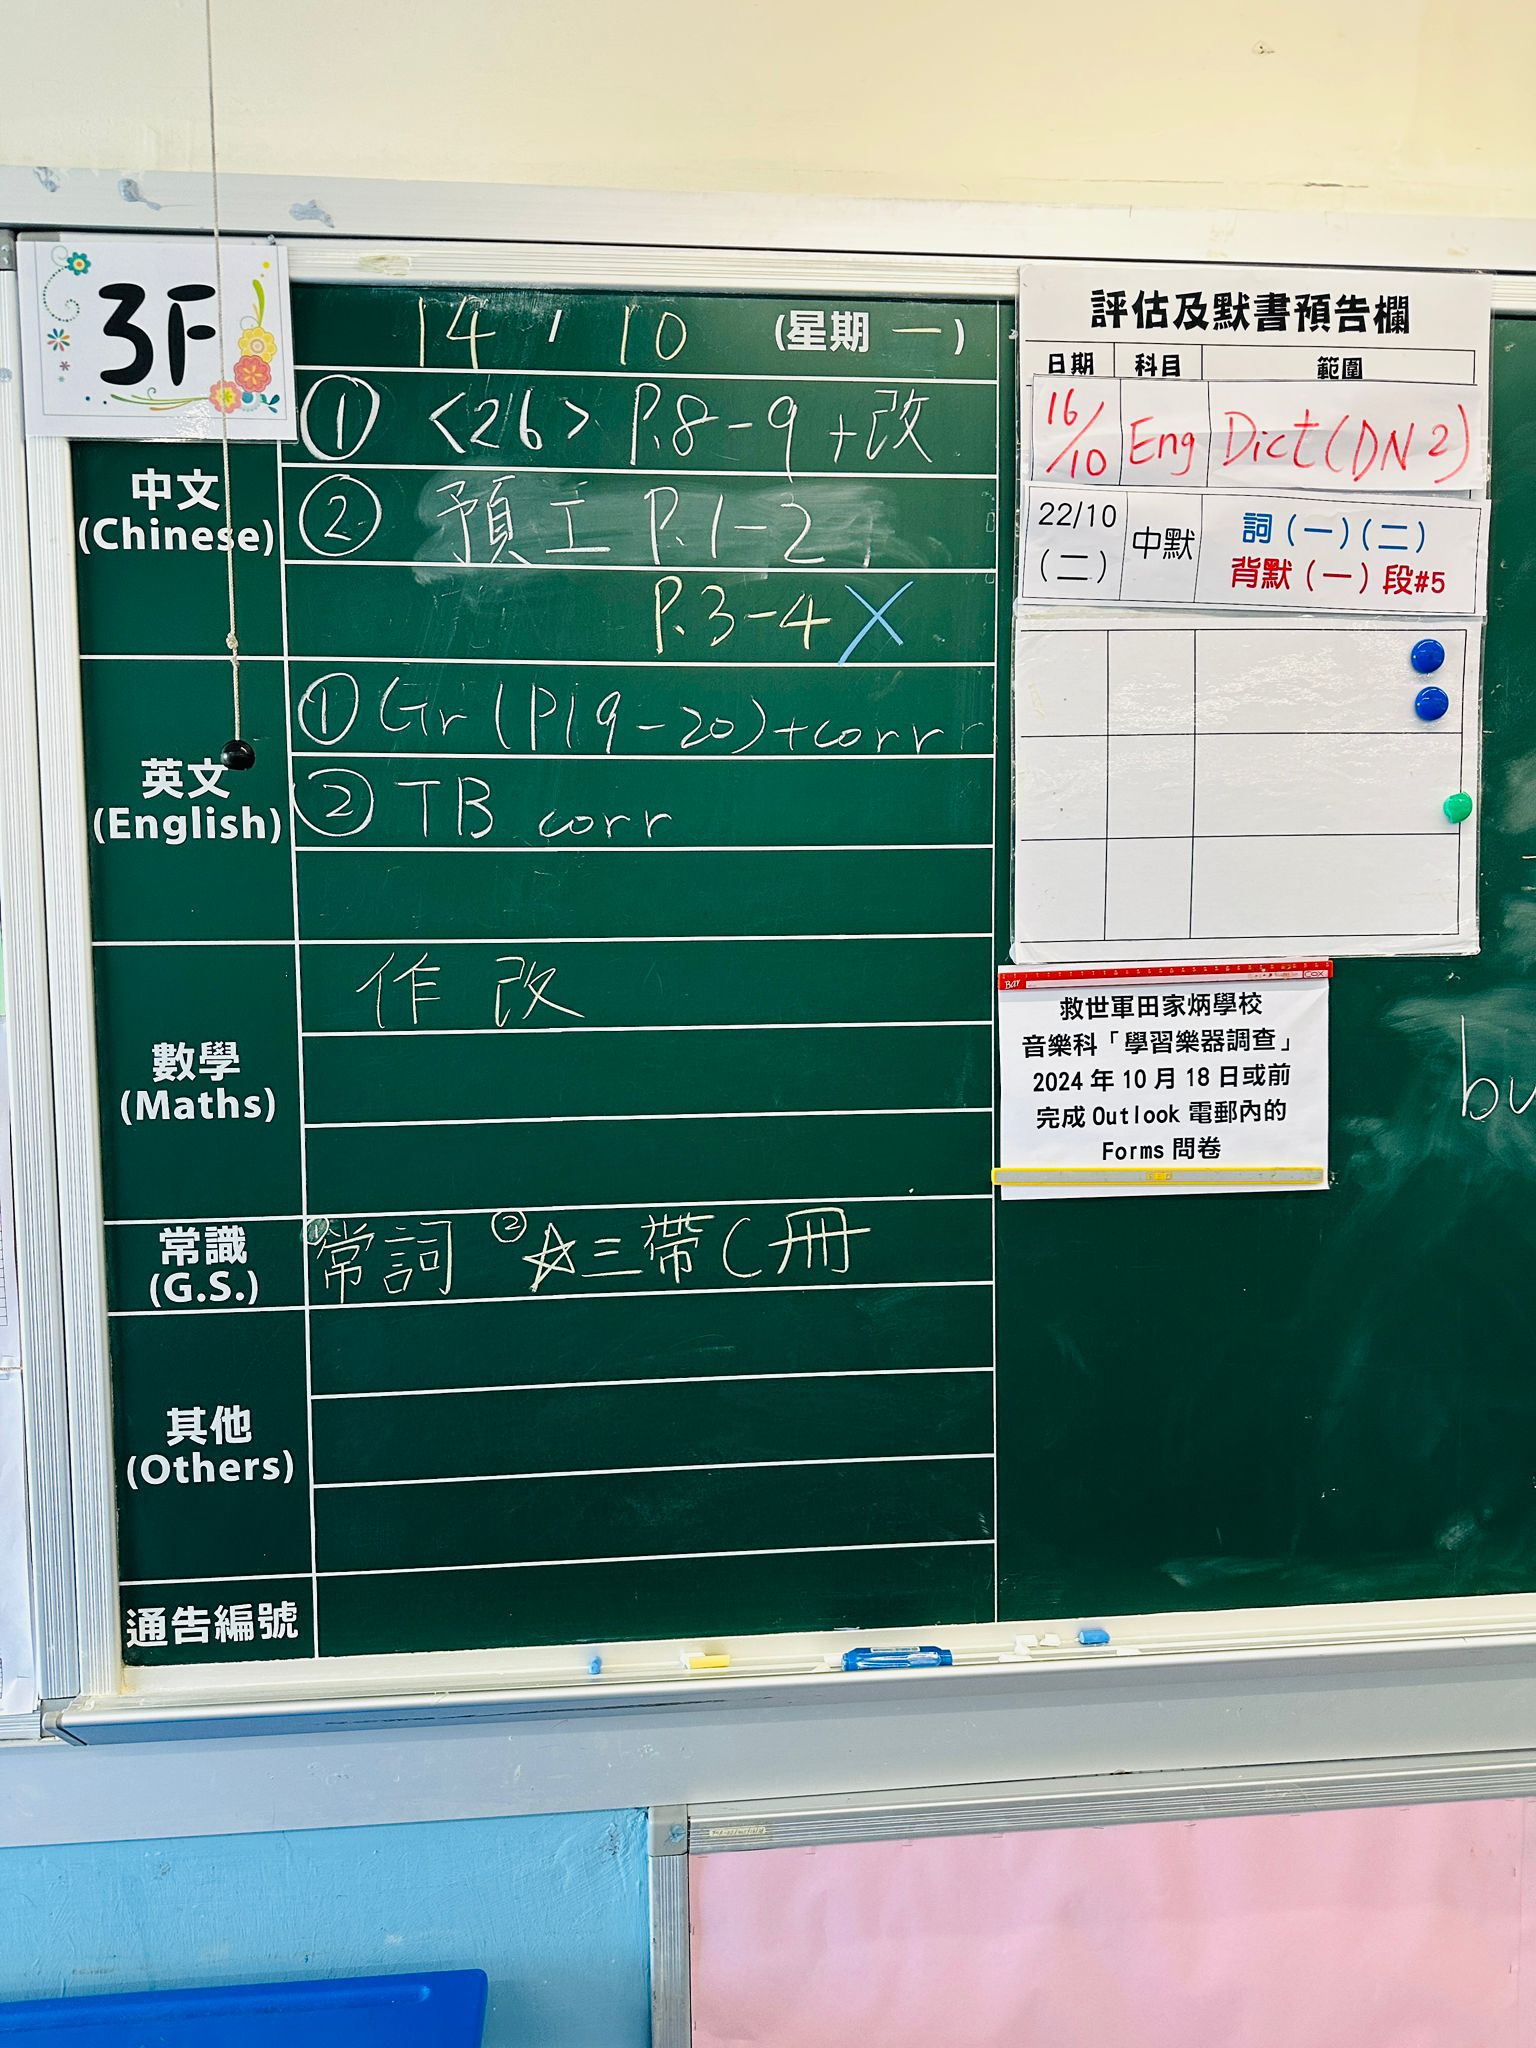 3F
14 / 10 (星期 一 )
中文
(Chinese)
① <26> P.8-9 +改
② 預工 P.1-2
P.3-4 X
英文
(English)
① Gr (P19-20)+corr
② TB corr
數學
(Maths)
作 改
常識
(G.S.)
① 常詞 ② ☆三帶C冊
其他
(Others)
通告編號
評估及默書預告欄
日期 科目 範圍
16/10 Eng Dict (DN 2)
22/10 (二) 中默 詞 (一) (二)
背默 (一) 段#5
Bar COX
救世軍田家炳學校
音樂科「學習樂器調查」
2024 年 10 月 18 日或前
完成 Outlook 電郵內的
Forms 問卷